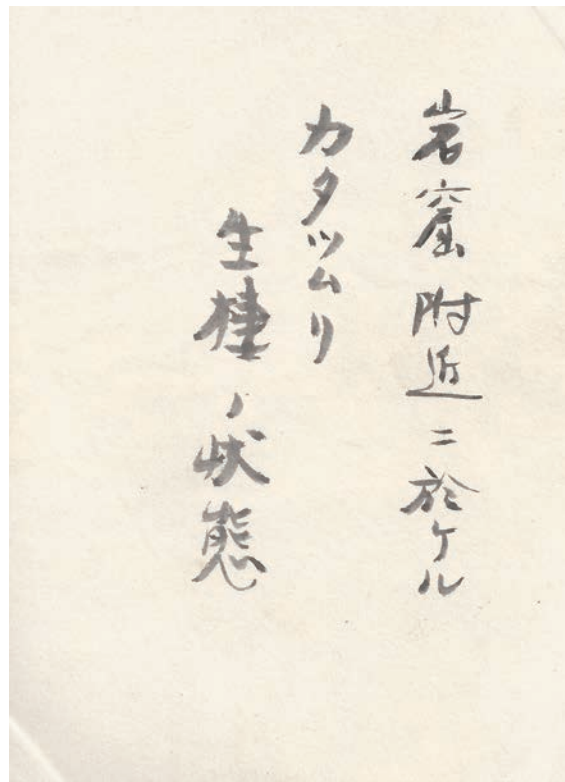 岩窟附近ニ於ケル
カタツムリ
生棲ノ状態